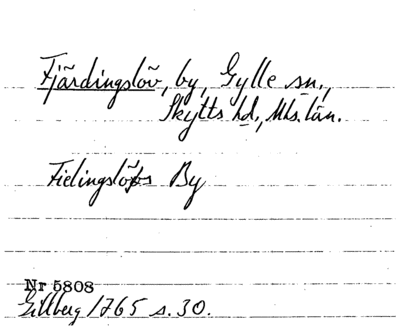 Fjärdingslöv, by, Gylle sn.,
Skytts hd., Mhs. län.
Fielingslöfs By
Nr 5808
Gillberg 1765 s. 30.